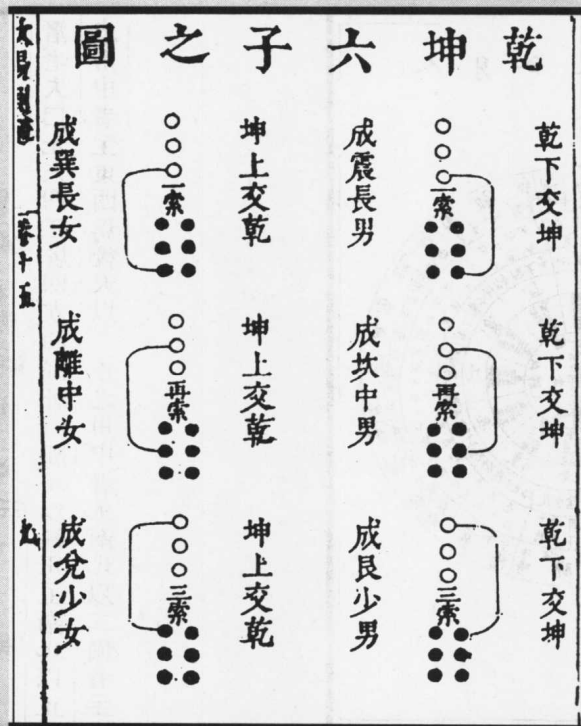 乾坤六子之圖
乾下交坤
一索
成震長男
乾下交坤
再索
成坎中男
乾下交坤
三索
成艮少男
坤上交乾
一索
成巽長女
坤上交乾
再索
成離中女
坤上交乾
三索
成兌少女
卷十五
九